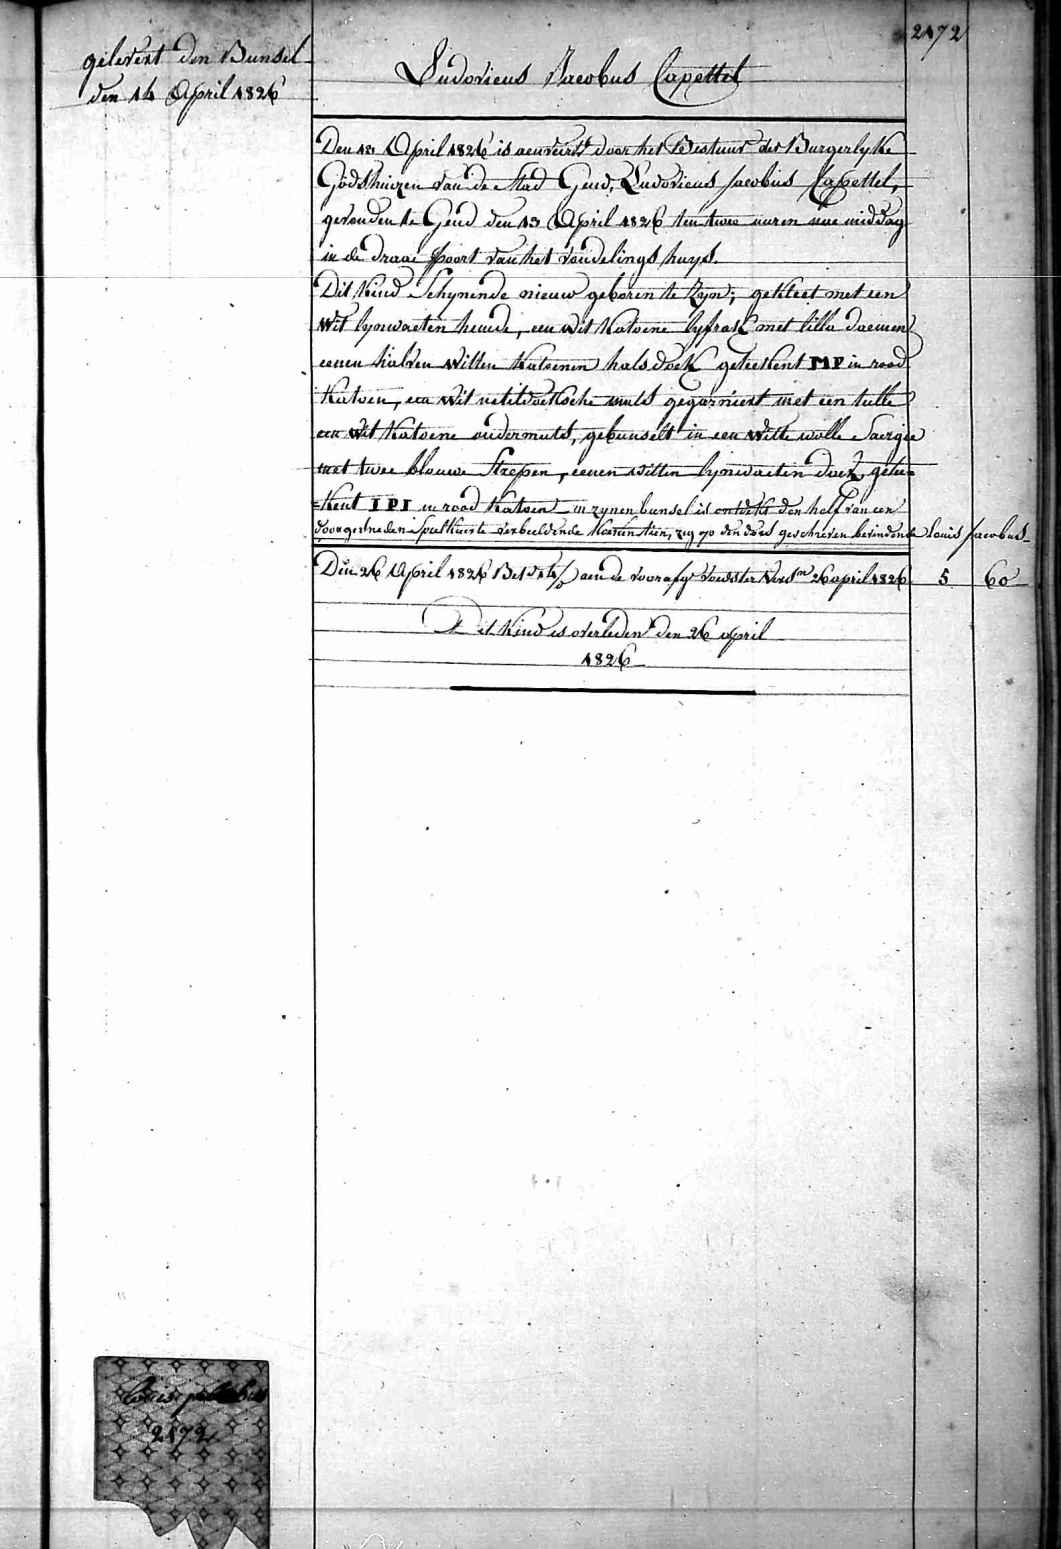 2172
gelevert den Bunsel
den 14 April 1826
Ludovicus Jacobus Capettel
Den 13 April 1826 is aenveird door het Bestuur der Burgerlyke
Godshuizen van de stad Gend, Ludovicus Jacobus Capettel,
gevonden te Gend den 13 April 1826 ten twee uuren nae middag
in de draai Poort van het vondelings huys.
Dit Kind Schynende nieuw geboren te Zyn; gekleet met een
wit lynwaeten hemde, een wit Katoene lyfrok met lilla
eenen halven witten Katoenen halsdoek geteekent IMP in rood
Katoen, een wit neteldoeksche muts gegarniert met een tulle
een wit Katoene ondermuts, gebunselt in een witte wolle Saergie
met twee blauwe Strepen, eenen witten lynwaeten doek, getee=
=Kent IPI in rood Katoen in zynen bunsel is ontdekt den helf van een
doorgesneden Speelkaerte verbeeldende, zeg op den das geschreven bevindende Louis Jacobus
Den 26 April 1826 Bet. aen de voorafg. Voedster Vers.m 26 april 1826 5 60
Dit Kind is overleden den 26 april
1826
Louis
2172